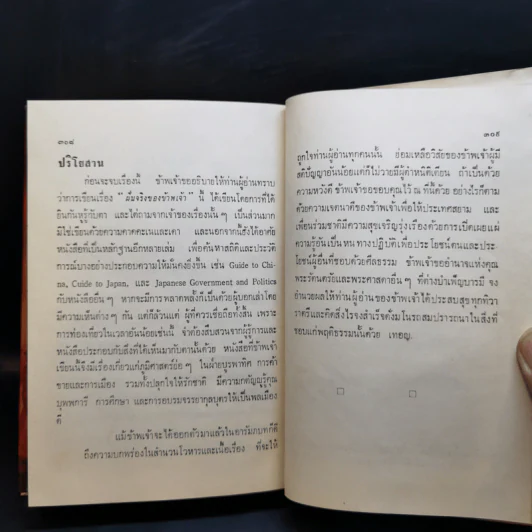 ๓๐๘
ปริโยสาน
ก่อนจะจบเรื่องนี้ ข้าพเจ้าขออธิบายให้ท่านผู้อ่านทราบ
ว่าการเขียนเรื่อง "ฝันจริงของข้าพเจ้า" นี้ ได้เขียนโดยการที่ได้
ยินกันหูรู้กับตา และได้ถามจากเจ้าของเรื่องนั้น ๆ เป็นส่วนมาก
มิใช่เขียนด้วยความคาดคะเนและเดา และนอกจากนี้ยังได้อาศัย
หนังสือที่เป็นหลักฐานอีกหลายเล่ม เพื่อค้นหาสถิติและประวัติ
การณ์บางอย่างประกอบความให้มั่นคงยิ่งขึ้น เช่น Guide to Chi-
na, Cuide to Japan, และ Japanese Government and Politics
กับหนังสืออื่น ๆ หากจะมีการพลาดพลั้งก็เป็นด้วยผู้บอกเล่าโดย
มีความเห็นต่าง ๆ กัน แต่ก็ล้วนแต่ ผู้ที่ควรเชื่อถือทั้งสิ้น เพราะ
การท่องเที่ยวในเวลาอันน้อยเช่นนี้ จำต้องสืบสวนจากผู้รู้การและ
หนังสือประกอบกับสิ่งที่ได้เห็นมากับตานั้นด้วย หนังสือที่ข้าพเจ้า
เขียนนี้จึงมีเรื่องเกี่ยวแก่ภูมิศาสตร์ย่อ ๆ ในฝ่ายบูรพาทิศ การค้า
ขายและการเมือง รวมทั้งปลุกใจให้รักชาติ มีความกตัญญูรู้คุณ
บุพพการี การศึกษา และการอบรมจรรยากุลบุตรให้เป็นพลเมือง
ดี
แม้ข้าพเจ้าจะได้ออกตัวมาแล้วในอารัมภบทก็ดี
ถึงความบกพร่องในสำนวนโวหารและเนื้อเรื่อง ที่จะให้
๓๐๙
ถูกใจท่านผู้อ่านทุกคนนั้น ย่อมเหลือวิสัยของข้าพเจ้าผู้มี
สติปัญญาอันน้อยแต่ก็ไม่วายมีผู้ตำหนิติเตียน ถ้าเป็นด้วย
ความหวังดี ข้าพเจ้าขอขอบคุณไว้ ณ ที่นี้ด้วย อย่างไรก็ตาม
ด้วยความเจตนาดีของข้าพเจ้าเพื่อให้ประเทศสยาม และ
เพื่อนร่วมชาติมีความสุขเจริญรุ่งเรืองด้วยการเปิดเผยแผ่
ความรู้อันเป็นหนทางปฏิบัติเพื่อประโยชน์ตนและประ-
โยชน์ผู้อื่นที่ชอบด้วยศีลธรรม ข้าพเจ้าขออำนาจแห่งคุณ
พระรัตนตรัยและพระศาสดาอื่น ๆ ที่ท่านบำเพ็ญบารมี จง
อำนวยผลให้ท่านผู้อ่านของข้าพเจ้าได้ประสบสุขทุกทิวา
ราตรีและคิดสิ่งไรจงสำเร็จดั่งมโนรถสมปรารถนาในสิ่งที่
ชอบแก่พฤติธรรมนั้นด้วย เทอญ.